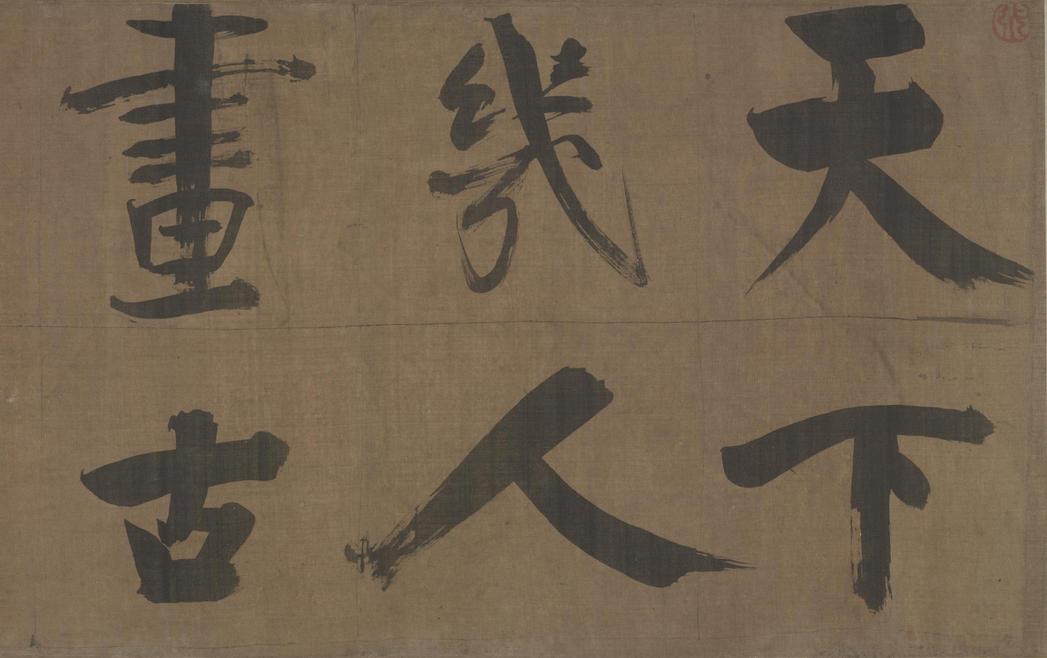 天下
幾人
畫古